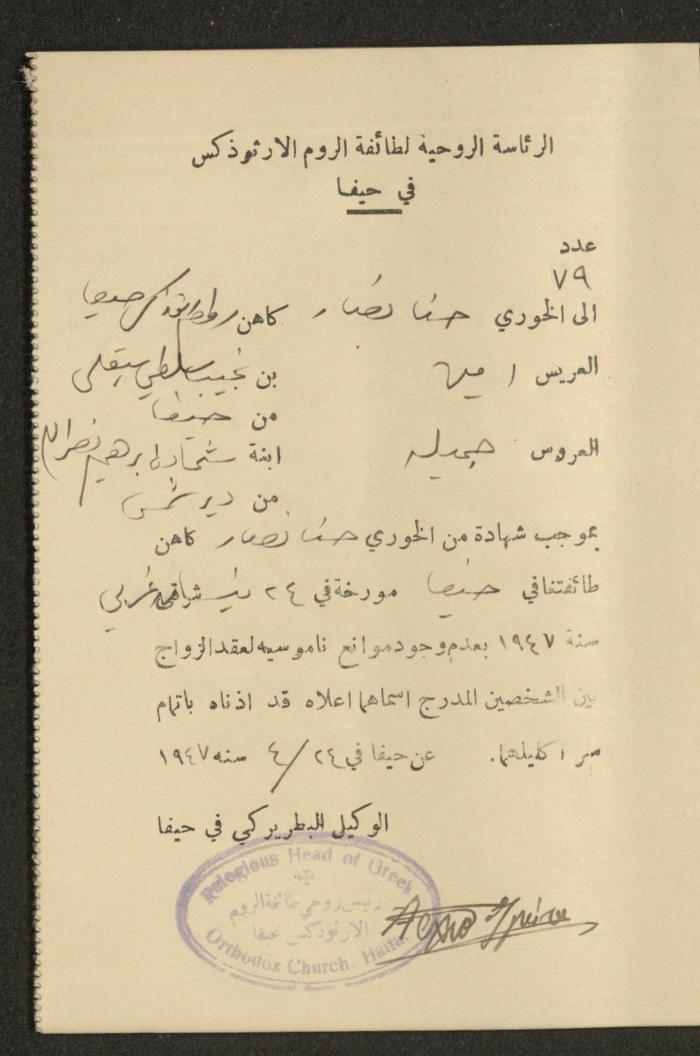 الرئاسة الروحية لطائفة الروم الارثوذكس
في حيفا
عدد
٧٩
الى الخوري حنا نصار كاهن حيفا
العريس امين بن نجيب سيقلي
من حيفا
العروس جميله ابنة شحاده ابرهيم نصرالله
من دير
بموجب شهادة من الخوري حنا نصار كاهن
طائفتنا في حيفا مورخة في ٢٤ شرقي غربي
سنة ١٩٤٧ بعدم وجود موانع ناموسيه لعقد الزواج
بين الشخصين المدرج اسماهما اعلاه قد اذناه باتمام
سر اكليلهما. عن حيفا في ٢٤/٤ سنه ١٩٤٧
الوكيل البطريركي في حيفا
Relegious Head of Greek
رئيس روحي طائفة الروم
الارثوذكس بحيفا
Orthodox Church. Haifa